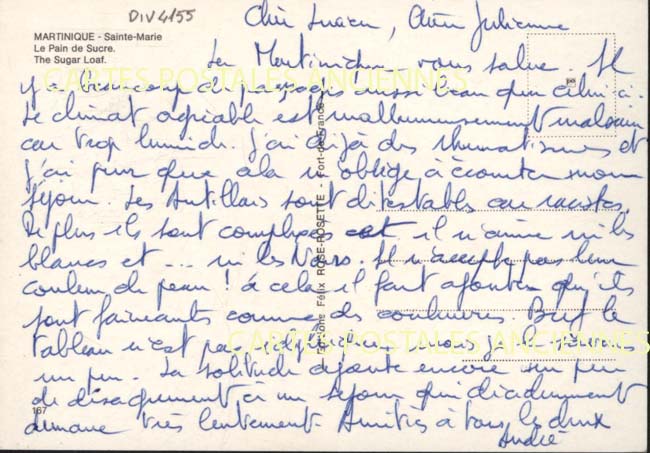 DIV4155
MARTINIQUE - Sainte-Marie
Le Pain de Sucre.
The Sugar Loaf.
Cher Lucien, Chère Julienne
La Martinique vous salue. Il
y a beaucoup de paysages aussi beau que celui ci.
Le climat agréable est malheureusement malsain
car trop humide. J'ai déjà des rhumatismes et
j'ai peur que cela m'oblige à écourter mon
séjour. Les Antillais sont détestables car racistes.
De plus ils sont complexés et il n'aime ni les
blancs et... ni les Noirs. Il n'accepte pas leur
couleur de peau! à cela il faut ajouter qu'ils
sont fainéants comme des couleuvres. Bref le
tableau n'est pas
un peu. La solitude ajoute encore un peu
de désagrément à un séjour qui décidemment
démarre très lentement. Amitiés à tous les deux
André
167
Editions Félix ROSE-ROSETTE - Fort-de-France
CARTES POSTALES ANCIENNES
CARTES POSTALES ANCIENNES